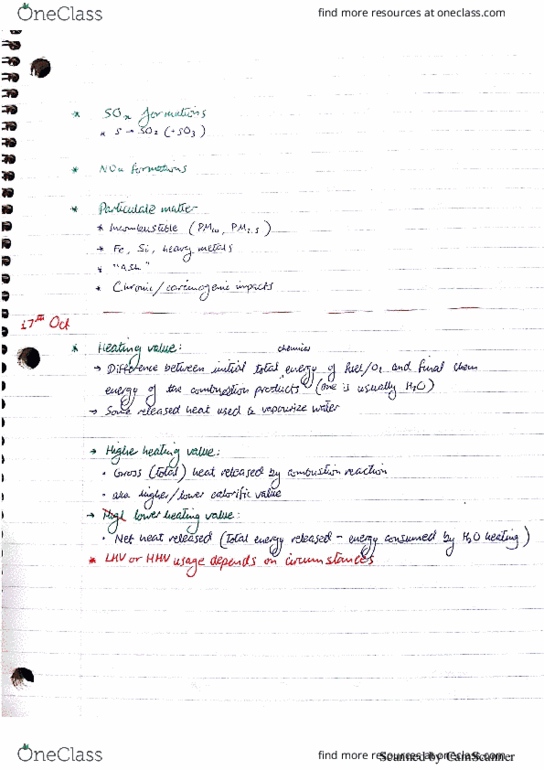 OneClass
find more resources at oneclass.com
* SOx formations
* S → SO2 (+SO3)
* NOx formations
* Particulate matter
* Incombustible (PM10, PM2.5)
→ Fe, Si, heavy metals
* "Ash"
* Chronic/carcinogenic impacts
17th Oct
* Heating value:
chemical
→ Difference between initial total energy of fuel/O2 and final chem
energy of the combustion products (one is usually H2O)
→ Some released heat used to vapourize water
→ Higher heating value:
• Gross (total) heat released by combustion reaction
• aka higher/lower calorific value
→ High lower heating value:
• Net heat released (total energy released - energy consumed by H2O heating)
* LHV or HHV usage depends on circumstances
OneClass
find more resources at oneclass.com
Scanned by CamScanner